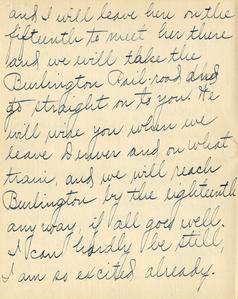 and I will leave here on the
fifteenth to meet her there
and we will take the
Burlington Rail-road and
go straight on to you. We
will wire you when we
leave Denver and on what
train, and we will reach
Burlington by the eighteenth
anyway, if all goes well.
I can hardly be still,
I am so excited already.